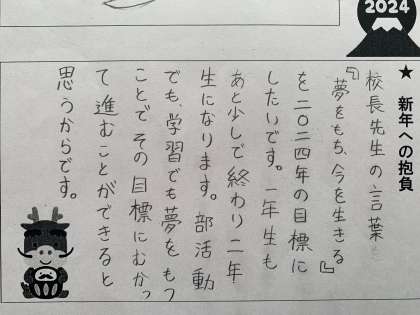 2024
★ 新年への抱負
校長先生の言葉
『夢をもち、今を生きる』
を二〇二四年の目標に
したいです。一年生も
あと少しで終わり二年
生になります。部活動
でも、学習でも夢をもつ
ことでその目標にむかっ
て進むことができると
思うからです。